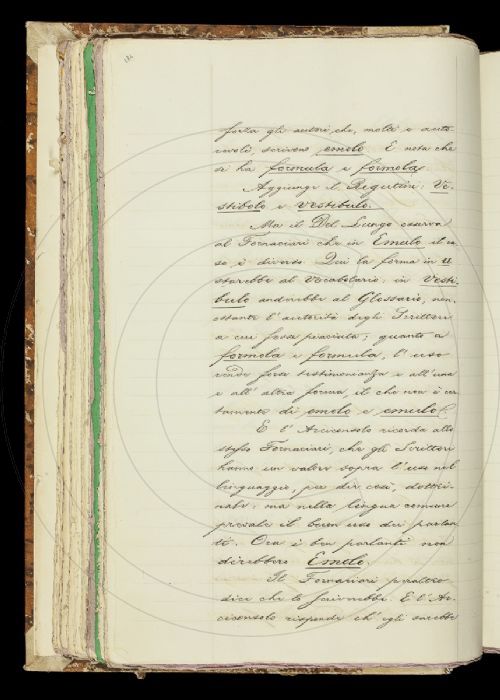 184
forza gli autori, che, molti e auto-
revoli, scrivono emolo. E nota che
si ha formula e formola.
Aggiunge il Rigutini: Ve-
stibolo e vestibulo.
Ma il Del Lungo osserva
al Fornaciari che in Emulo il ca-
so è diverso. Qui la forma in u
starebbe al Vocabolario; in Vesti-
bulo andrebbe al Glossario, non
ostante l'autorità degli Scrittori
a cui fosse piaciuta; quanto a
formola e formula, l'uso
rende forse testimonianza e all'una
e all'altra forma, il che non è cer-
tamente di emolo e emulo.
E l'Arciconsolo ricorda allo
stesso Fornaciari, che gli Scrittori
hanno un valore sopra l'uso nel
linguaggio, per dir così, dottri-
nale: ma nella lingua comune
prevale il buon uso dei parlan-
ti. Ora i ben parlanti non
direbbero Emolo.
Il Fornaciari peraltro
dice che lo scriverebbe. E l'Ar-
ciconsolo risponde ch'egli sarebbe